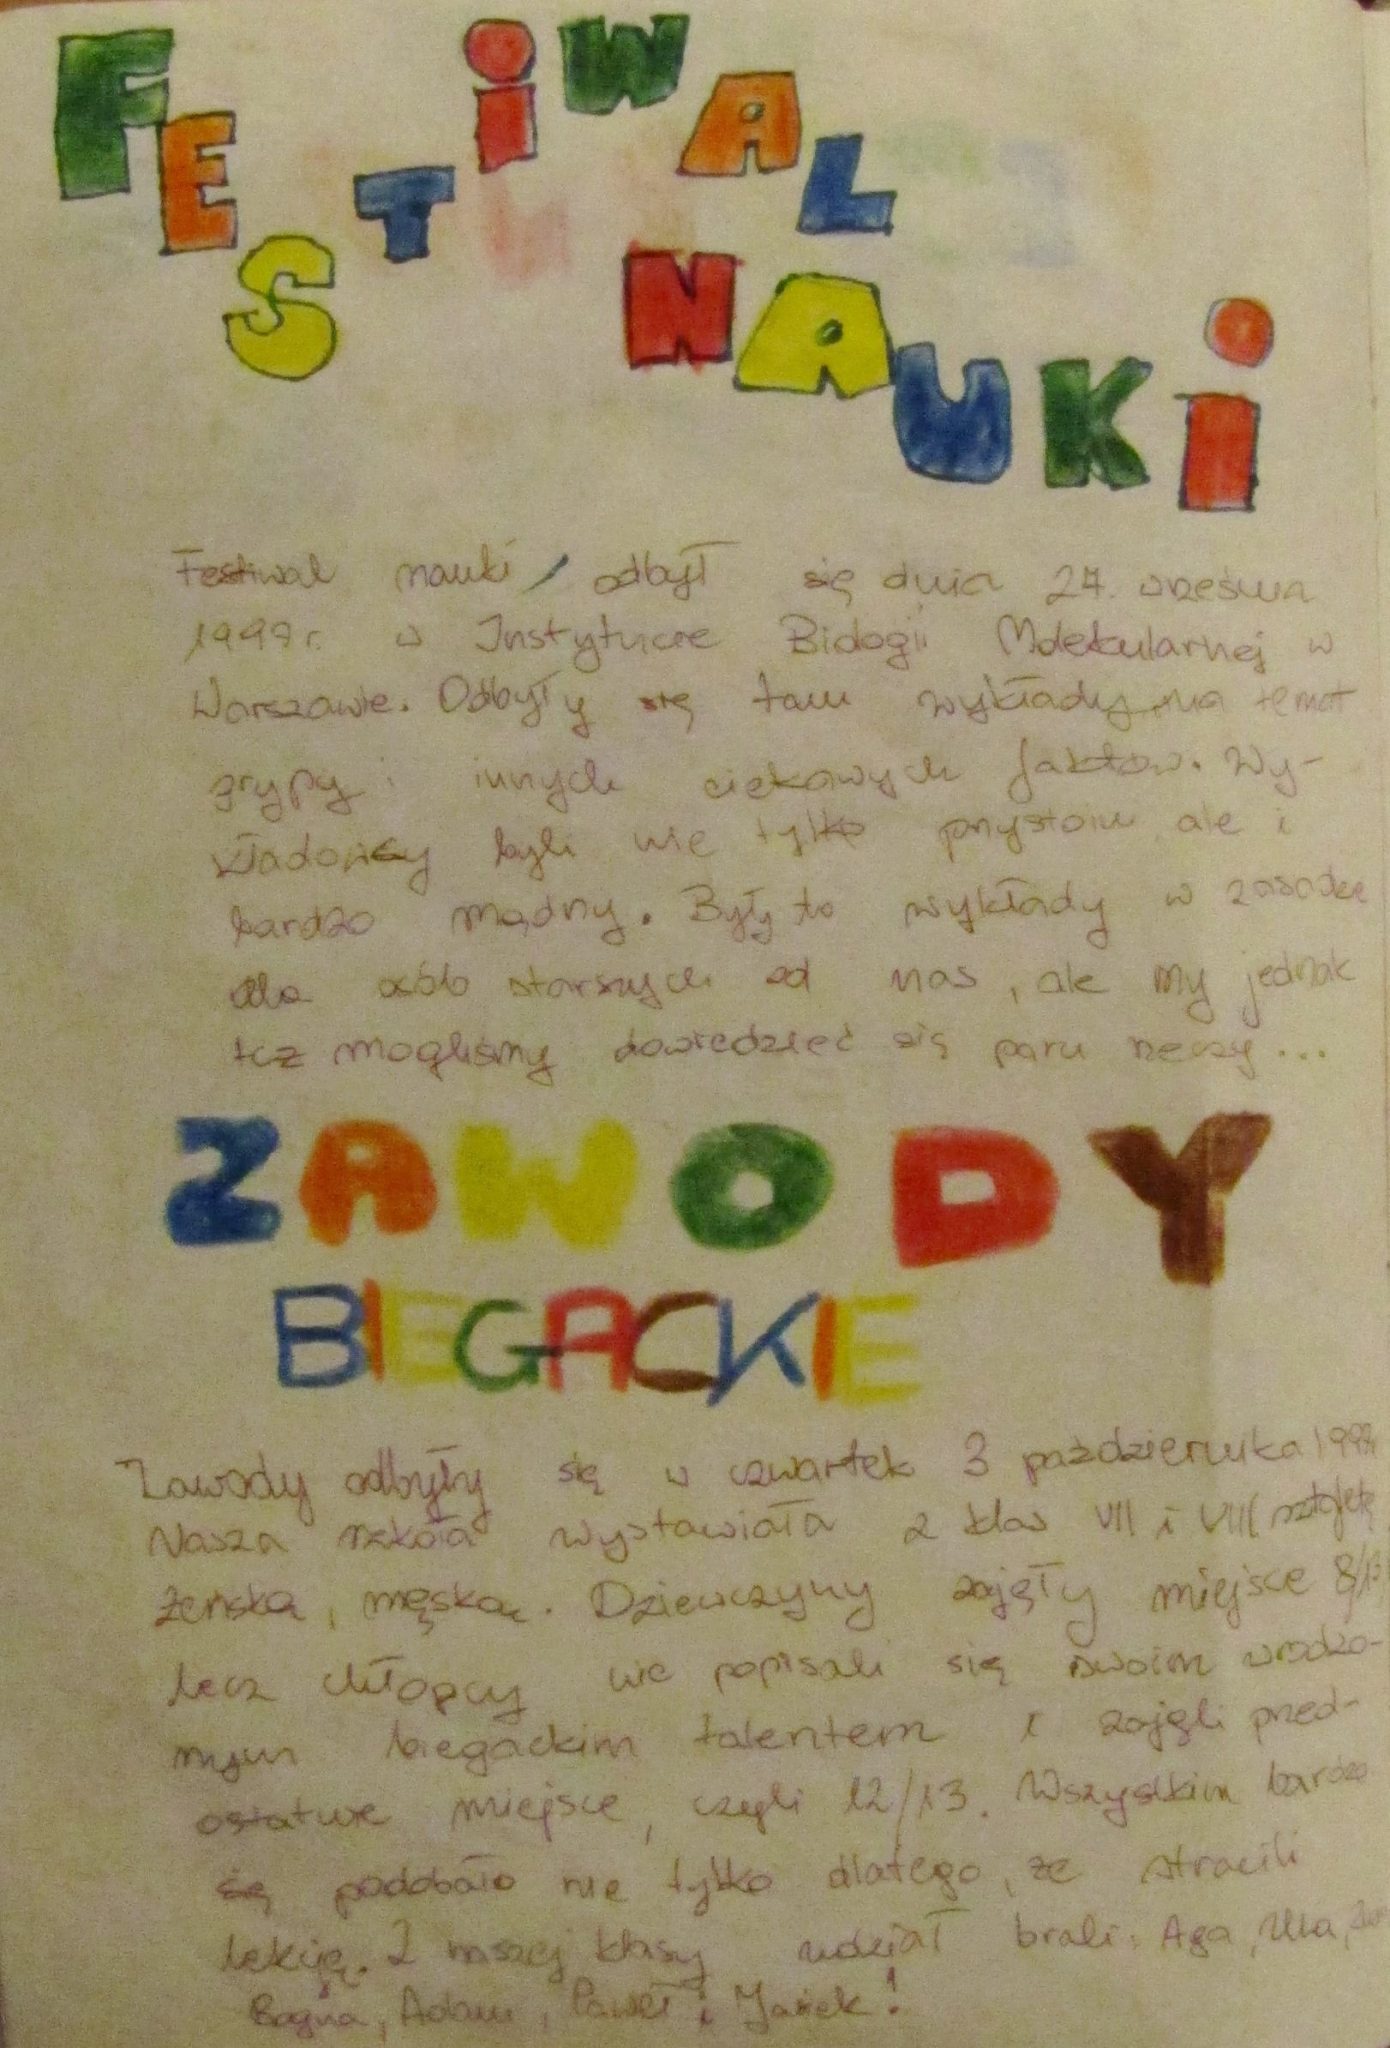 FESTIWAL
NAUKI
Festiwal nauki odbył się dnia 27. września
w Instytucie Biologii Molekularnej w
Warszawie. Odbyły się tam wykłady na temat
grypy i innych ciekawych faktów. Wy-
kładowcy byli nie tylko przystojni ale i
bardzo mądrzy. Były to wykłady w zasadzie
dla osób starszych od nas, ale my jednak
też mogliśmy dowiedzieć się paru rzeczy...
ZAWODY
BIEGACKIE
Zawody odbyły się w czwartek 3 października
Nasza szkoła wystawiała z klas VII i VIII sztafetę
żeńską, męską. Dziewczyny zajęły miejsce
lecz chłopcy nie popisali się swoim wrodzo-
nym biegackim talentem i zajęli przed-
ostatnie miejsce, czyli 12/13. Wszystkim bardzo
się podobało nie tylko dlatego, że stracili
lekcję. Z naszej klasy udział brali: Aga, Ula,
Bogna, Adam, Paweł i Jasiek!